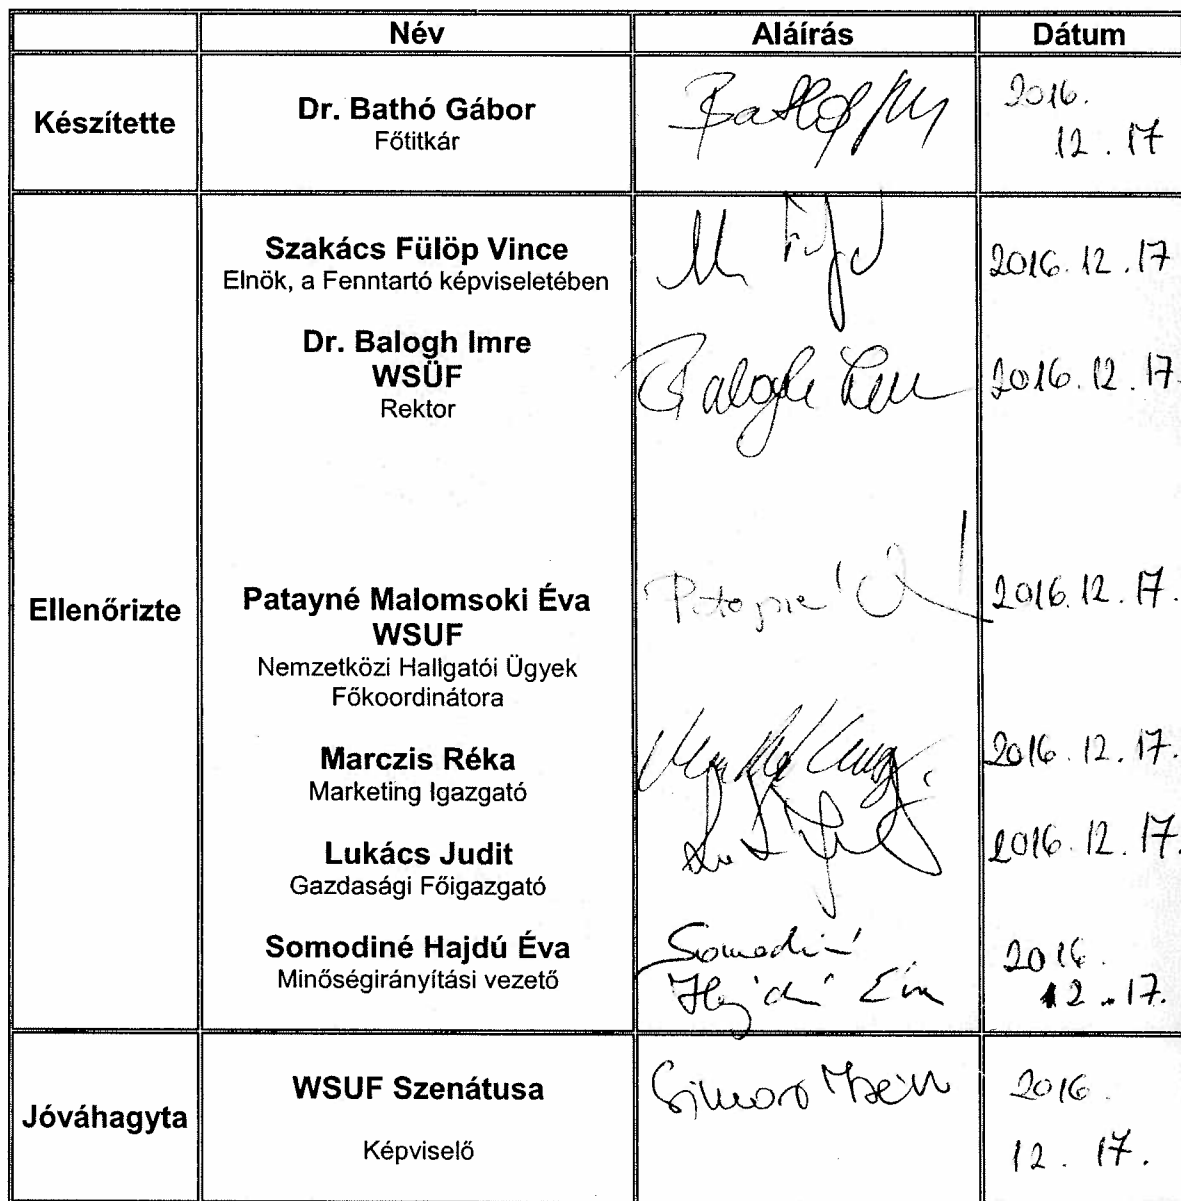 Név Aláírás Dátum
Készítette
Dr. Bathó Gábor
Főtitkár
Bathó
2016.
12. 17
Ellenőrizte
Szakács Fülöp Vince
Elnök, a Fenntartó képviseletében
2016. 12. 17
Dr. Balogh Imre
WSÜF
Rektor
Balogh Imre
2016. 12. 17.
Patayné Malomsoki Éva
WSUF
Nemzetközi Hallgatói Ügyek
Főkoordinátora
Patayné
2016. 12. 17.
Marczis Réka
Marketing Igazgató
2016. 12. 17.
Lukács Judit
Gazdasági Főigazgató
2016. 12. 17.
Somodiné Hajdú Éva
Minőségirányítási vezető
Somodiné
Hajdú Éva
2016.
12. 17.
Jóváhagyta
WSUF Szenátusa
Képviselő
2016.
12. 17.